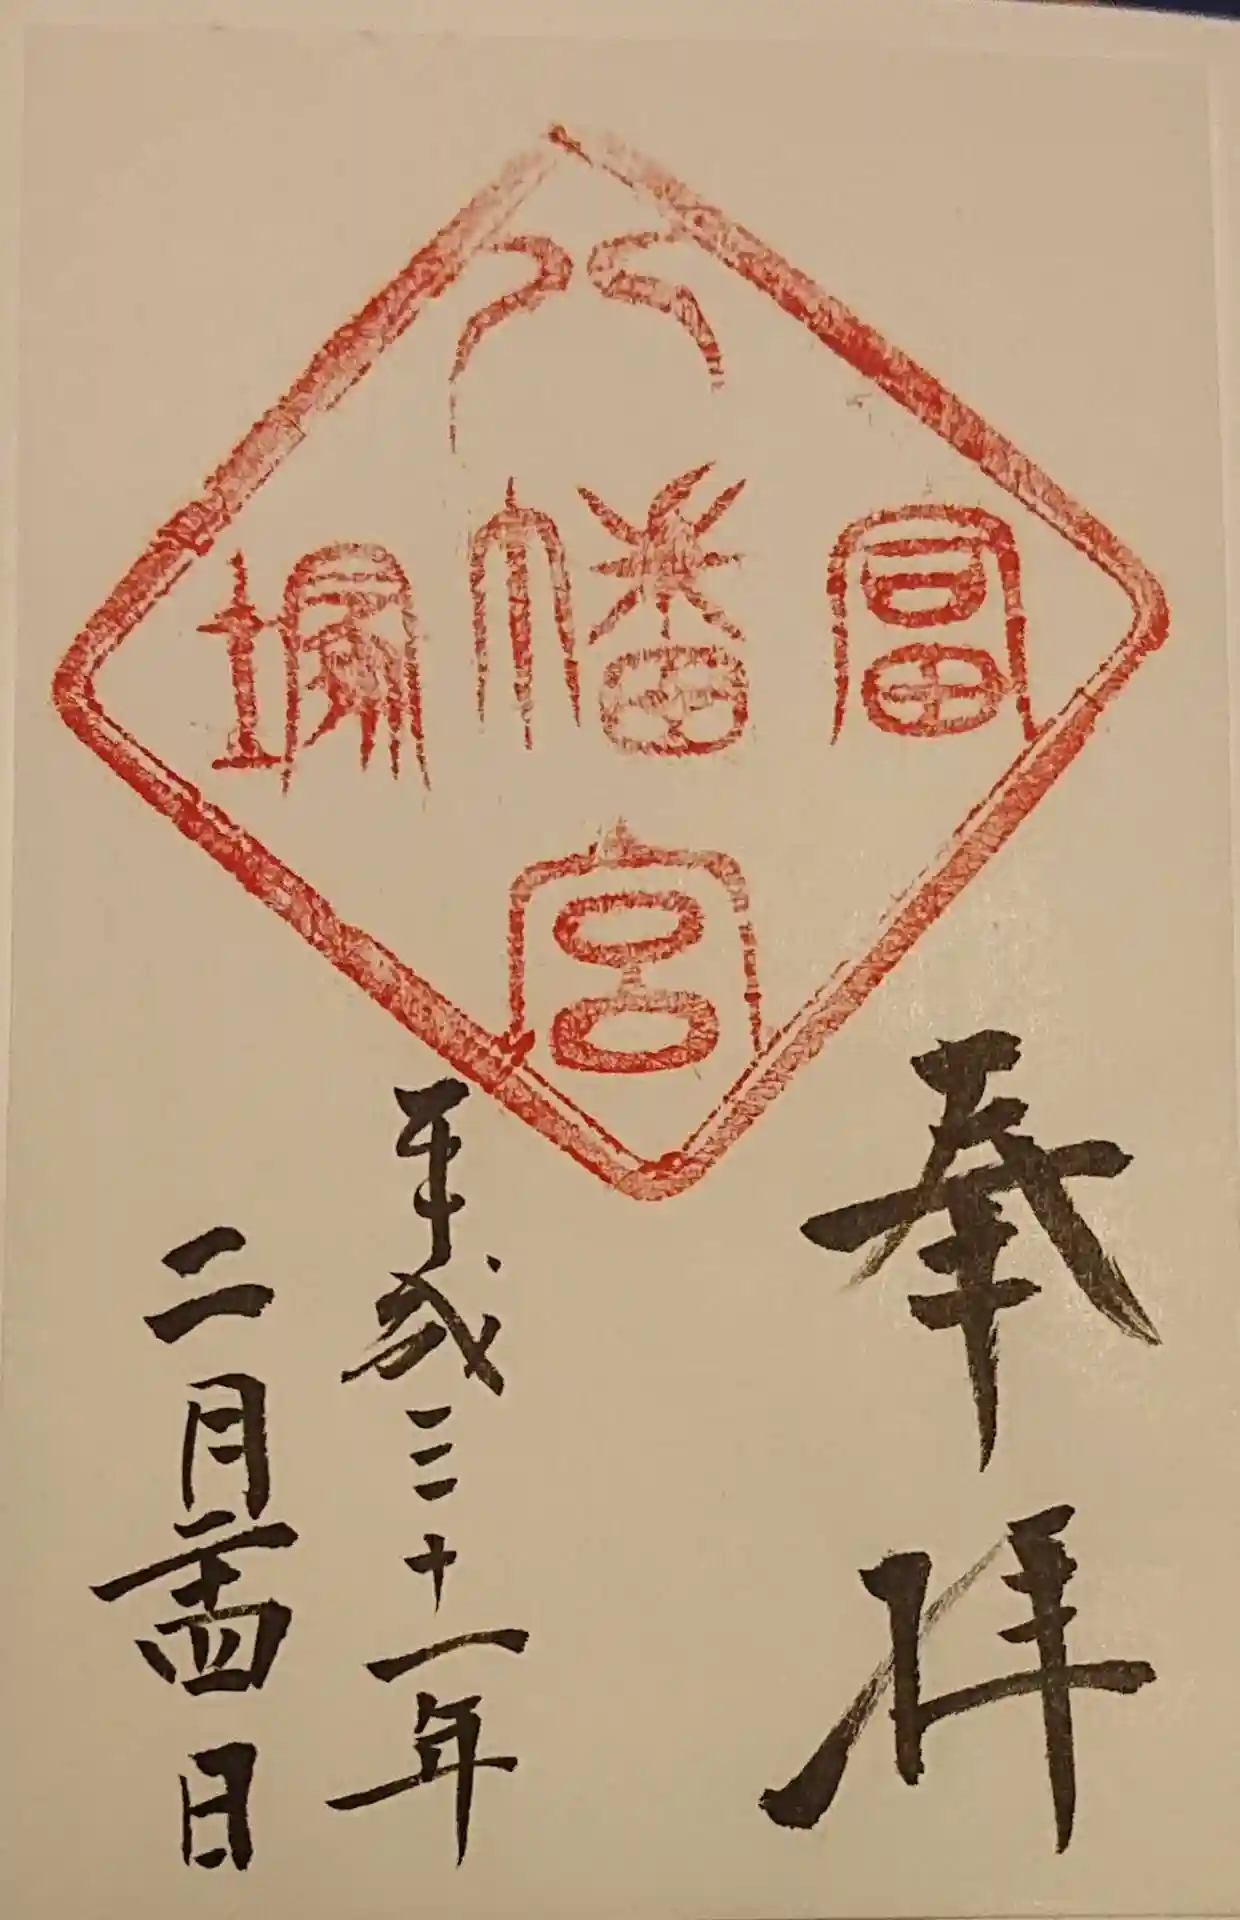 奉拝
富
八幡宮
塚
平成三十一年
二月二十四日